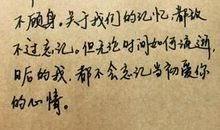 不顾身。关于我们的记忆,都敌
不过忘记。但无论时间如何流逝,
日后的我,都不会忘记当初爱你
的心情。